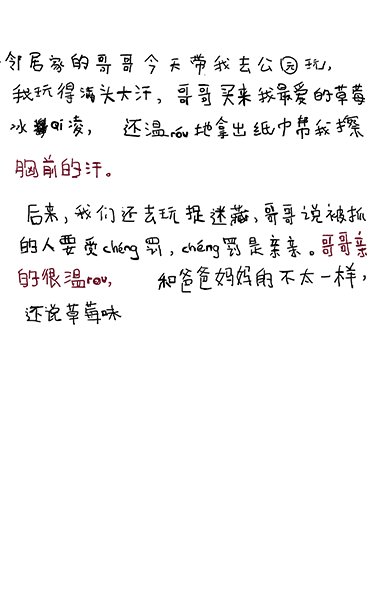 邻居家的哥哥今天带我去公园玩，
我玩得满头大汗，哥哥买来我最爱的草莓
冰qi凌，还温róu地拿出纸巾帮我擦
胸前的汗。
后来，我们还去玩捉迷藏，哥哥说被抓
的人要受chéng罚，chéng罚是亲亲。哥哥亲
的很温rou，和爸爸妈妈的不太一样，
还说草莓味